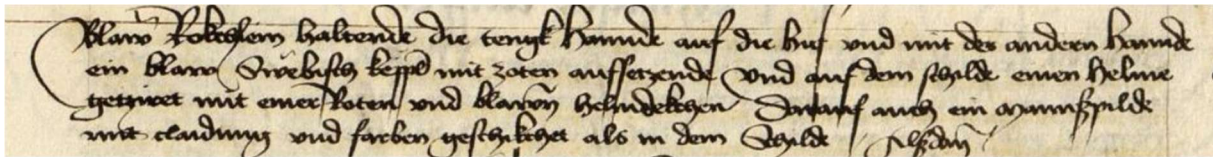 Blaw Rokchlein haltende die tengk Hannde auf die huf vnd mit der andern Hannde
ein blaw Swebisch keppel mit zoten aufsetzende Vnd auf dem schilde einen Helme
getziret mit einer Roten vnd blawen helmdekchen Darauf auch ein mannszpilde
mit claidung vnd farben geschikchet als in dem Schilde